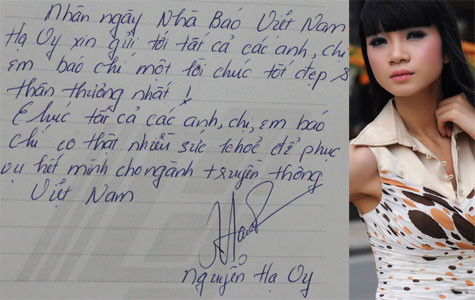 Nhân ngày Nhà Báo Việt Nam
Hạ Vy xin gửi tới tất cả các anh, chị
em báo chí một lời chúc tốt đẹp &
thân thương nhất !
Chúc tất cả các anh, chị, em báo
chí có thật nhiều sức khoẻ để phục
vụ hết mình cho ngành truyền thông
Việt Nam
Nguyễn Hạ Vy